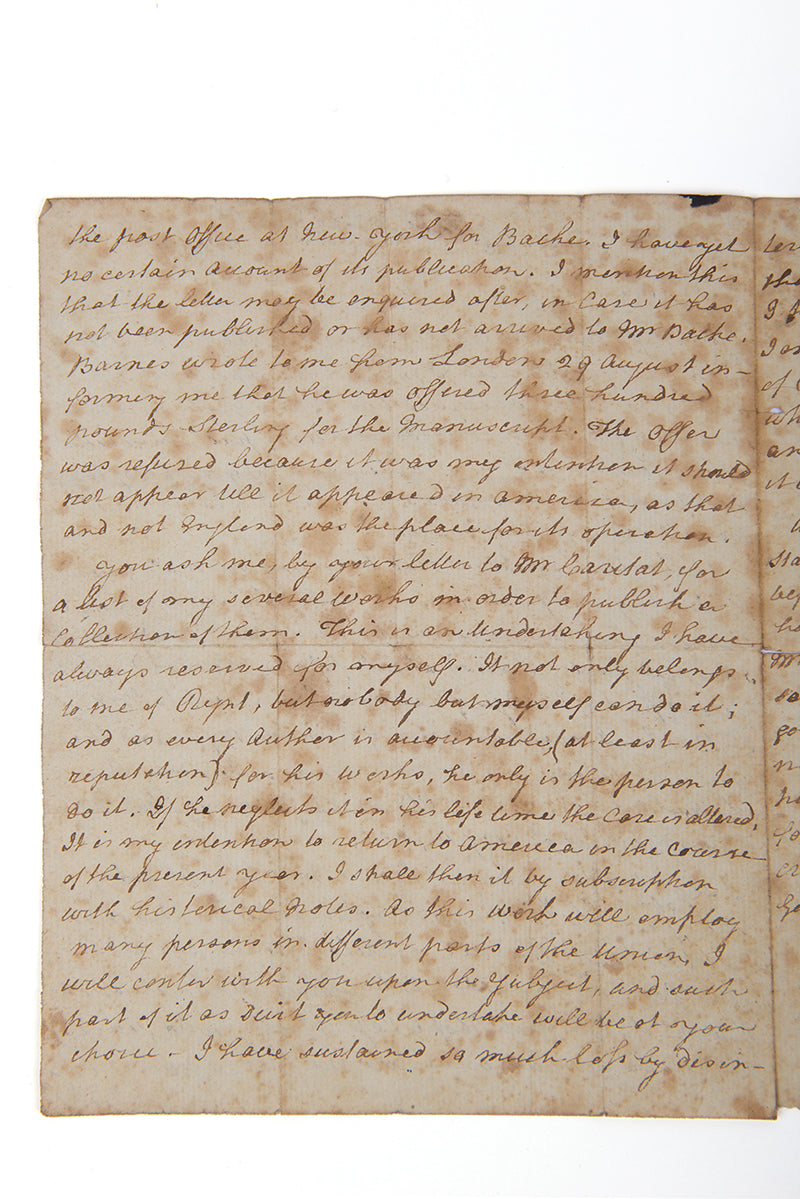 the post Office at New-York for Bache. I have yet
no certain account of its publication. I mention this
that the letter may be enquired after, in Case it has
not been published or has not arrived to Mr Bache.
Barnes wrote to me from London 29 August in-
forming me that he was offered three hundred
pounds Sterling for the Manuscript. The offer
was refused because it was my intention it should
not appear till it appeared in america, as that
and not England was the place for its operation.
You ask me, by your letter to Mr Caritat, for
a list of my several works in order to publish a
Collection of them. This is an Undertaking I have
always reserved for myself. It not only belongs
to me of Right, but nobody but myself can do it;
and as every Author is accountable, (at least in
reputation) for his works, he only is the person to
do it. If he neglects it in his life time the Case is altered.
It is my intention to return to America in the course
of the present year. I shall then it by subscription
with historical Notes. As this work will employ
many persons in different parts of the Union, I
will confer with you upon the Subject, and such
part of it as Suit you to undertake will be at your
choice - I have sustained so much loss by disin-